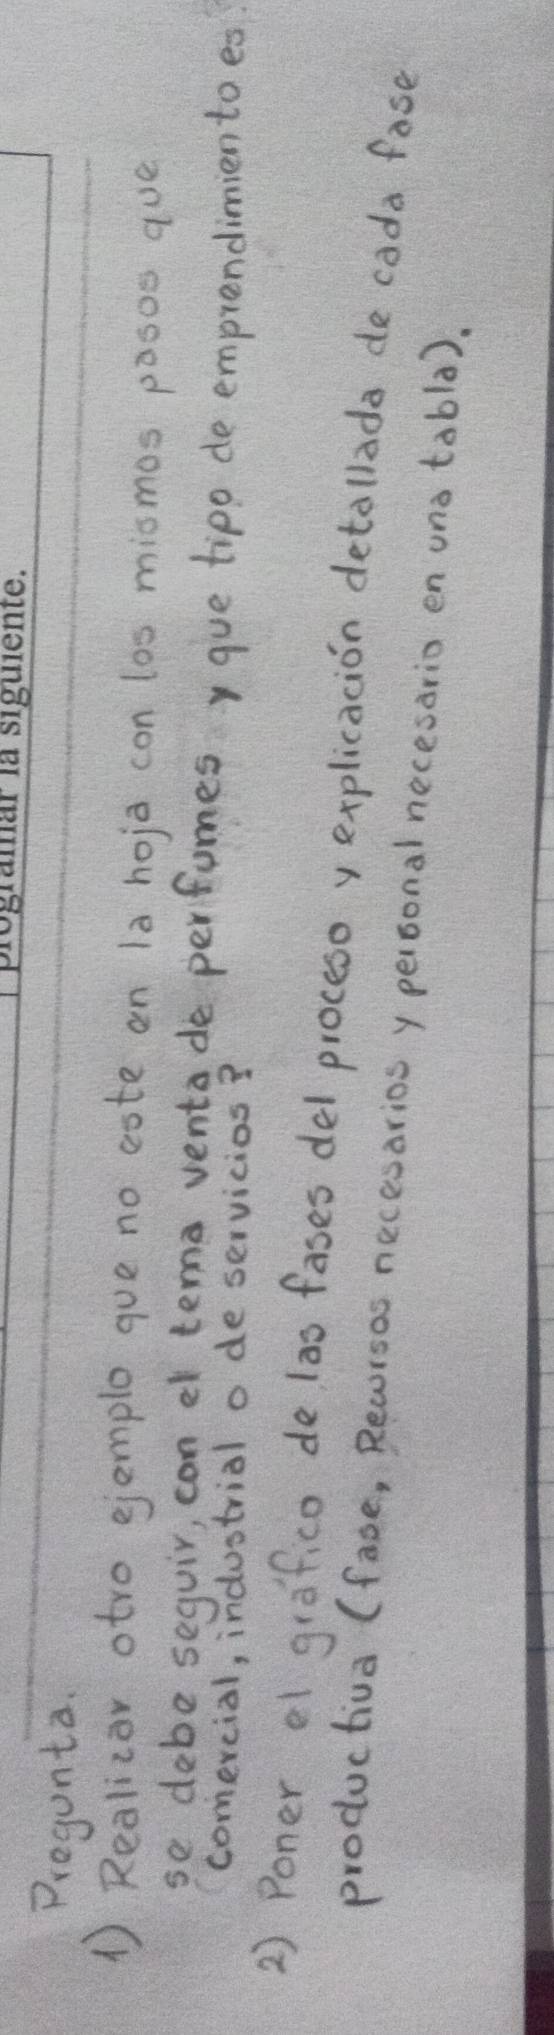 programar la siguiente.
Pregunta.
1) Realizar otro ejemplo que no este en la hoja con los mismos pasos que
se debe seguir, con el tema venta de perfumes y que tipo de emprendimiento es?
comercial, industrial o de servicios?
2) Poner el gráfico de las fases del proceso y explicación detallada de cada fase
productiva (fase, Recursos necesarios y personal necesario en una tabla).